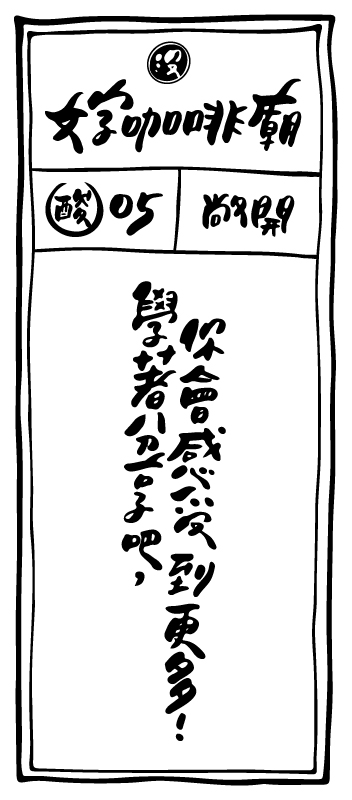 沒
好咖啡廟
酸 05 敞開
學著分享吧，
你會感受到更多！